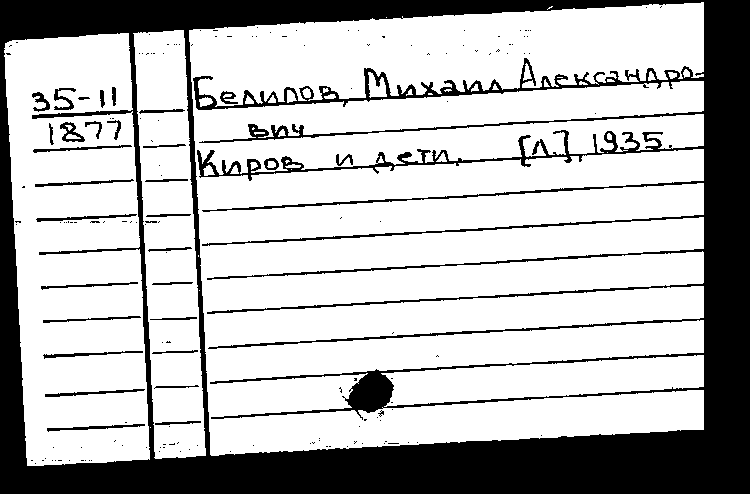 35-11
1877
Белипов, Михаил Александро-
вич
Киров и дети. [Л.], 1935.